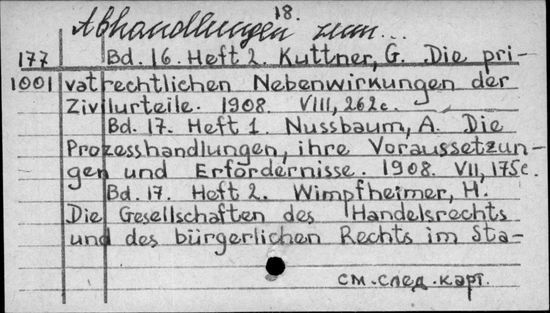 18.
Abhandlungen zum...
177 Bd. 16. Heft 2. Kuttner, G. Die pri-
1001 vatrechtlichen Nebenwirkungen der
Zivilurteile. 1908. VIII, 262c.
Bd. 17. Heft 1. Nussbaum, A. Die
Prozesshandlungen, ihre Voraussetzun-
gen und Erfordernisse. 1908. VII, 175c.
Bd. 17. Heft 2. Wimpfheimer, H.
Die Gesellschaften des Handelsrechts
und des bürgerlichen Rechts im Sta-
см. след. карт.